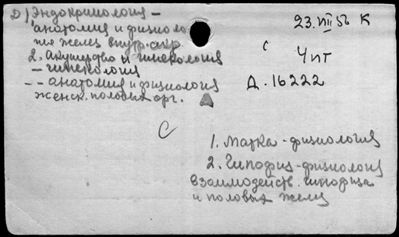 D) Эндокринология -
анатомия и физиоло
гия желез внутр. секр.
2. Акушерство и гинекология
- гинекология
-- анатомия и физиология
женск. половых орг.
23.VIII 56 К
с
Чпт
Д. 16222
С
1. Матка - физиология
2. Гипофиз - физиология
взаимодейств. гипофиза
и половых желез